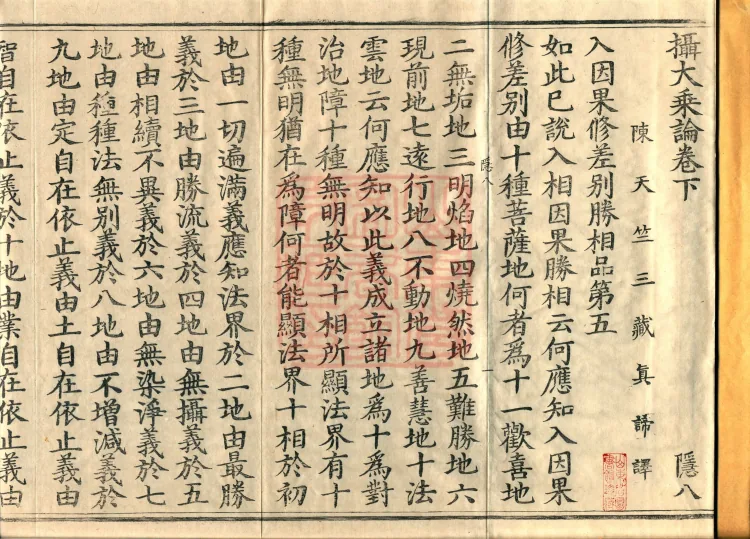 攝大乘論卷下　隱八
陳天竺三藏真諦譯
入因果修差別勝相品第五
如此已說入相因果勝相云何應知入因果
修差別由十種菩薩地何者爲十一歡喜地
二無垢地三明焰地四燒然地五難勝地六
現前地七遠行地八不動地九善慧地十法
雲地云何應知以此義成立諸地爲十爲對
治地障十種無明故於十相所顯法界有十
種無明猶在爲障何者能顯法界十相於初
地由一切遍滿義應知法界於二地由最勝
義於三地由勝流義於四地由無攝義於五
地由相續不異義於六地由無染淨義於七
地由種種法無別義於八地由不增減義於
九地由定自在依止義由土自在依止義由
智自在依止義於十地由業自在依止義由